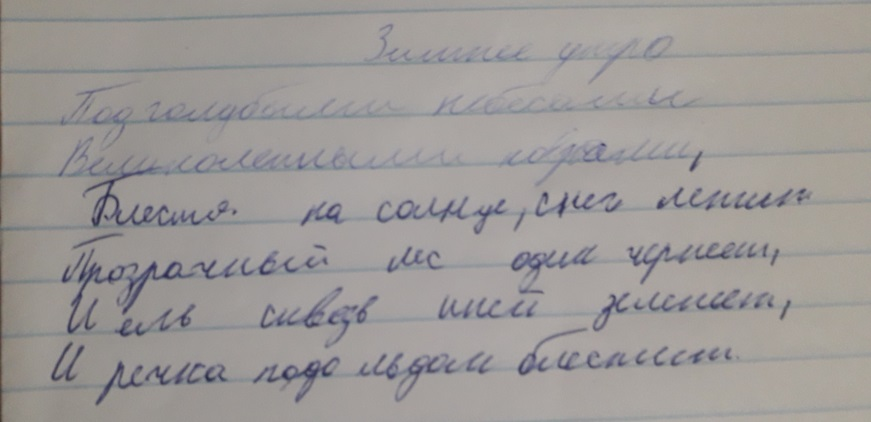 Зимнее утро
Под голубыми небесами
Великолепными коврами,
Блестя на солнце, снег лежит
Прозрачный лес один чернеет,
И ель сквозь иней зеленеет,
И речка подо льдом блестит.